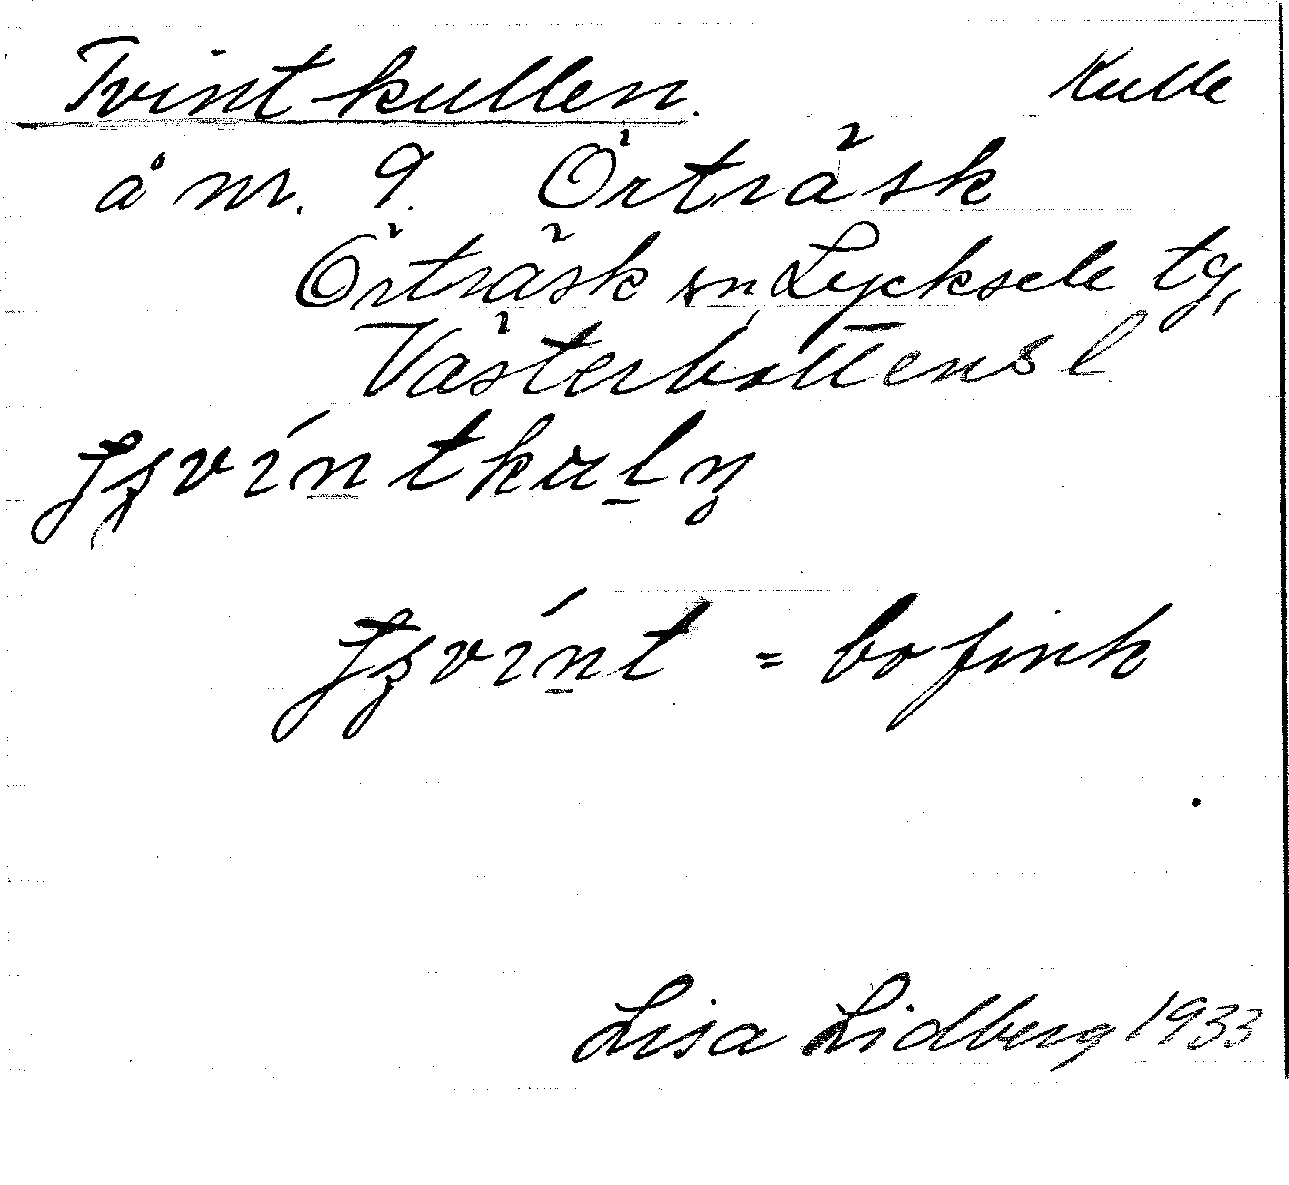 Tvintkullen. Kulle
å nr. 9. Örträsk
Örträsk sn, Lycksele tg,
Västerbottens l
= bofink
Lisa Lidberg 1933